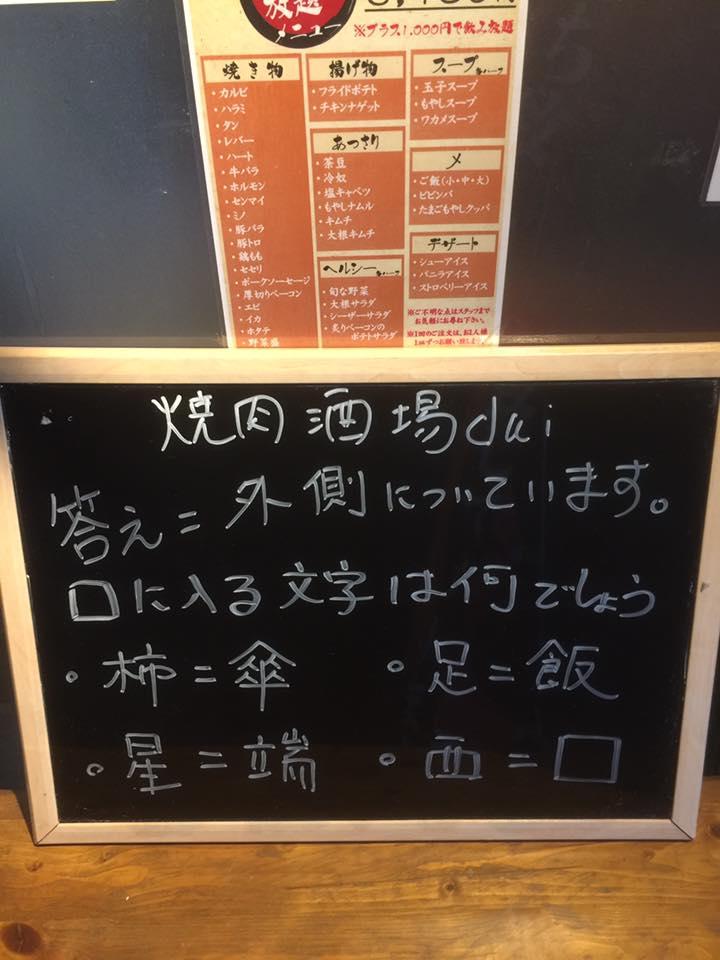 放題
メニュー
※プラス1,000円で飲み放題
焼き物
・カルビ
・ハラミ
・タン
・レバー
・ハート
・牛バラ
・ホルモン
・センマイ
・ミノ
・豚バラ
・豚トロ
・鶏もも
・セセリ
・ポークソーセージ
・厚切りベーコン
・エビ
・イカ
・ホタテ
・野菜盛
揚げ物
・フライドポテト
・チキンナゲット
あっさり
・茶豆
・冷奴
・塩キャベツ
・もやしナムル
・キムチ
・大根キムチ
ヘルシー
・旬な野菜
・大根サラダ
・シーザーサラダ
・炙りベーコンの
ポテトサラダ
スープ
・玉子スープ
・もやしスープ
・ワカメスープ
〆
・ご飯(小・中・大)
・ビビンバ
・たまごもやしクッパ
デザート
・シューアイス
・バニラアイス
・ストロベリーアイス
※ご不明な点はスタッフまで
お気軽にお尋ね下さい。
※1回のご注文は、お1人様
焼肉酒場dai
答え=外側についています。
□に入る文字は何でしょう
・柿=傘 ・足=飯
・星=端 ・西=□